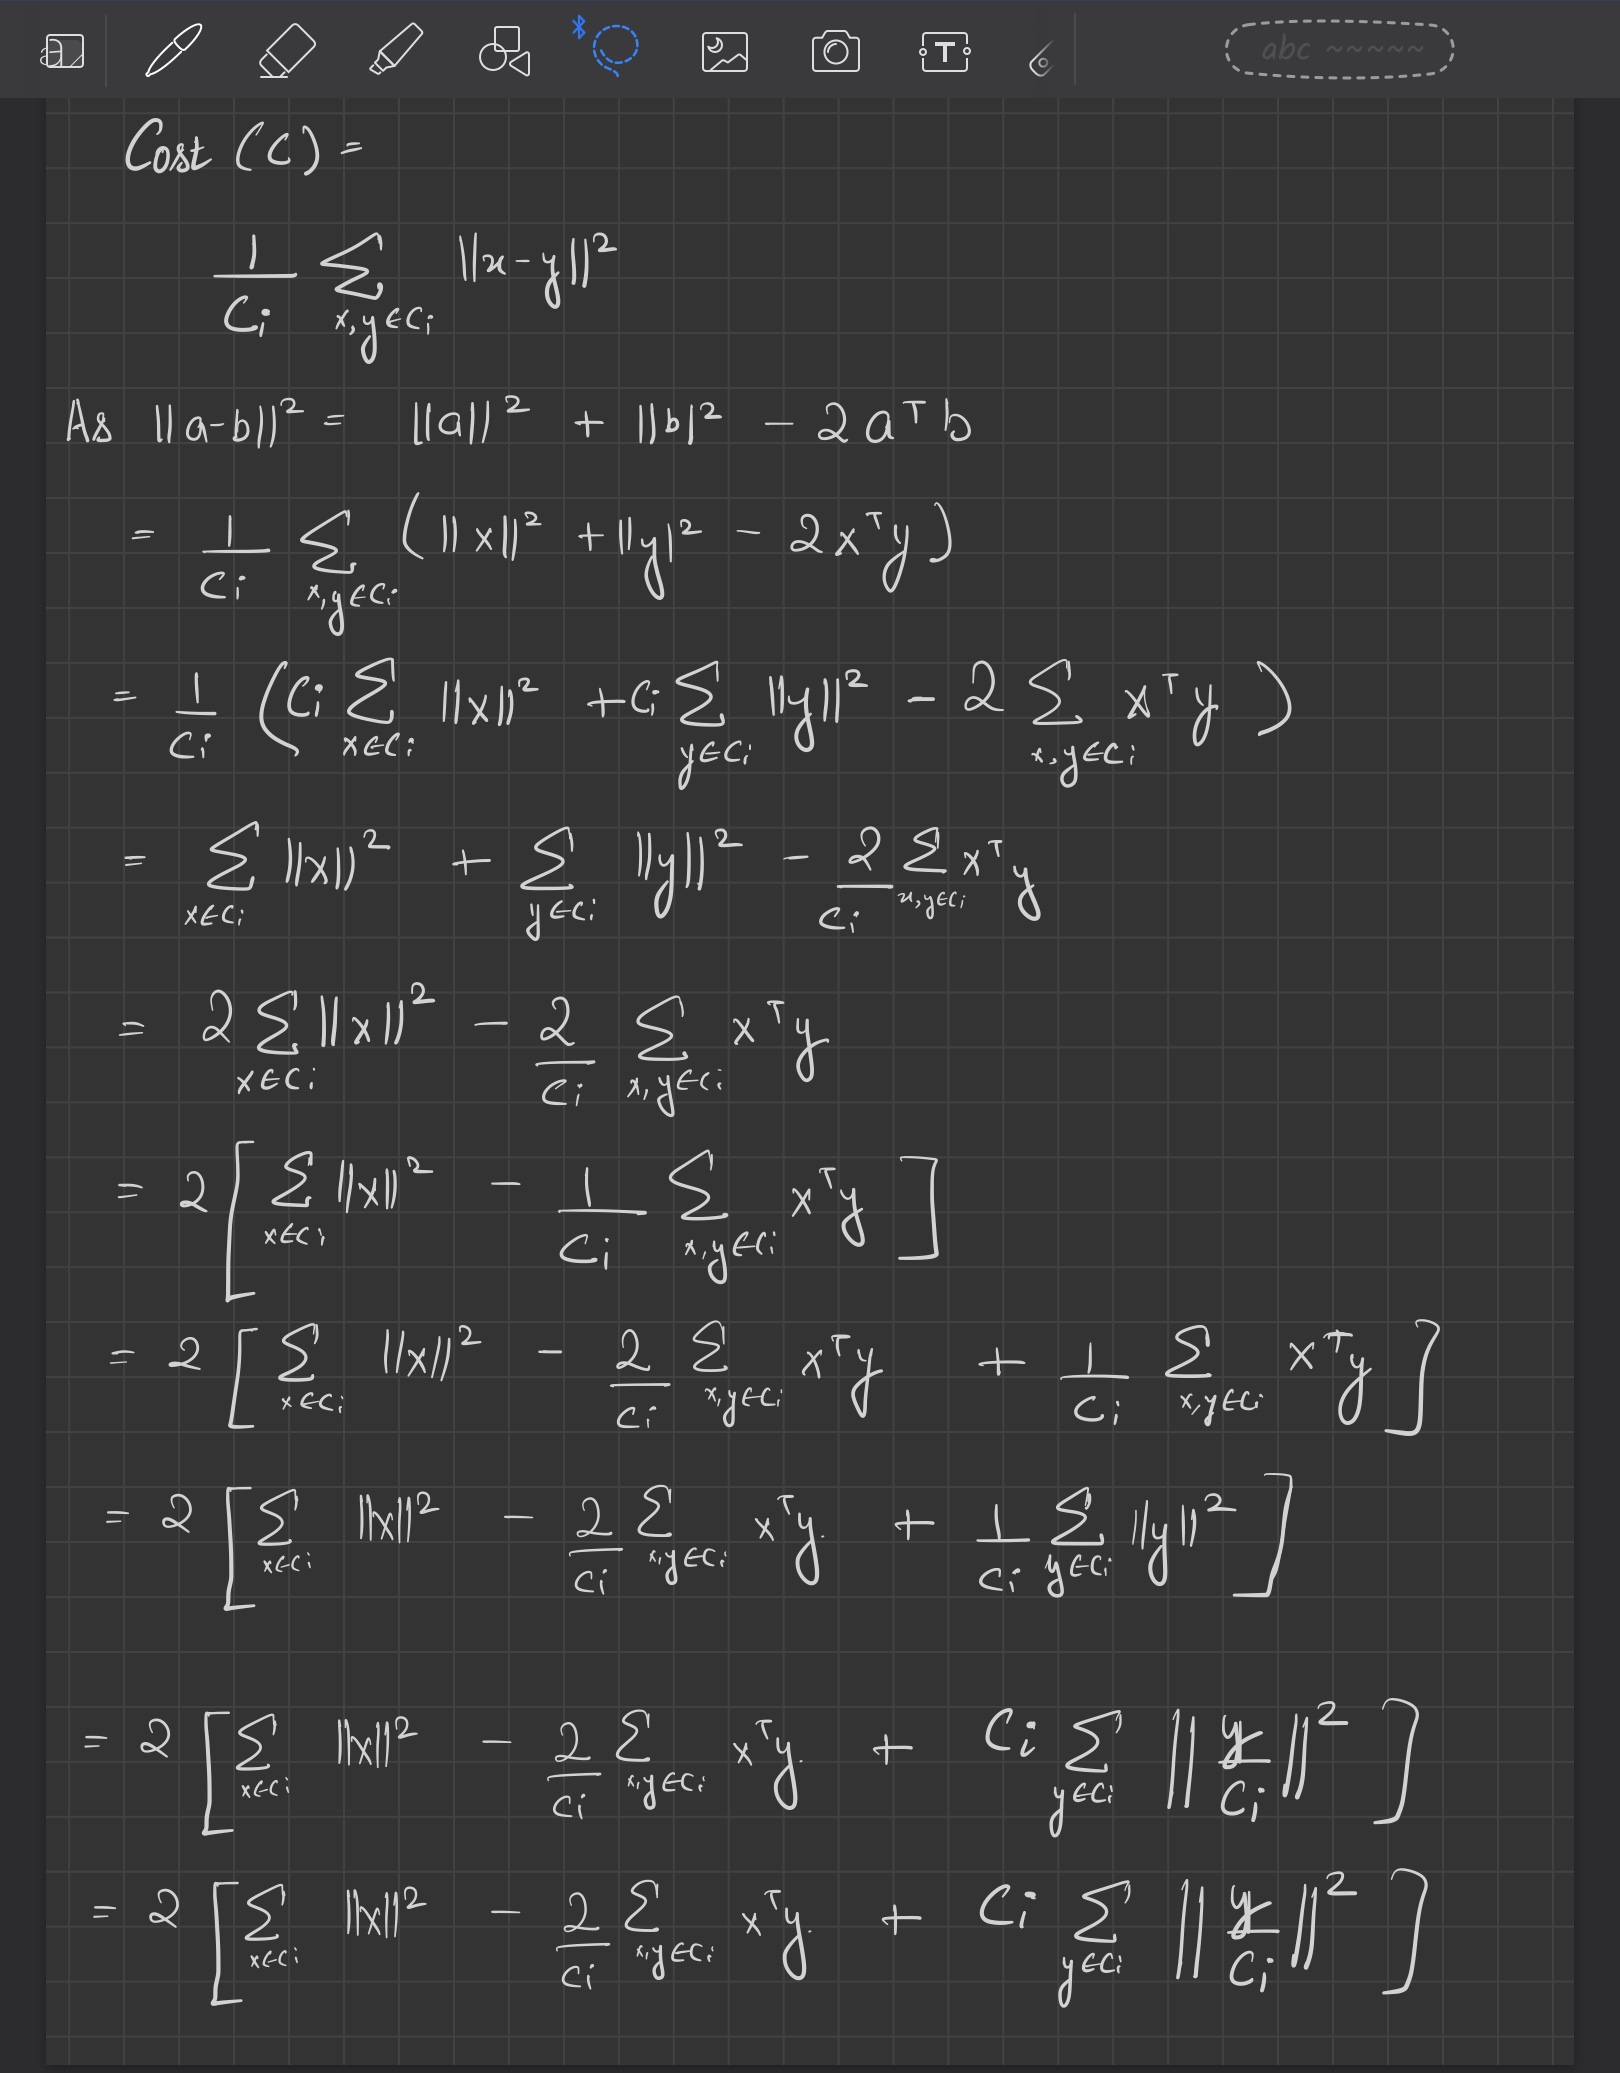 abc ~~~~~
Cost (C) =
1/Ci Σ_{x,y∈Ci} ||x-y||²
As ||a-b||² = ||a||² + ||b|² - 2aᵀb
= 1/Ci Σ_{x,y∈Ci} (||x||² + ||y|² - 2xᵀy)
= 1/Ci (Ci Σ_{x∈Ci} ||x||² + Ci Σ_{y∈Ci} ||y||² - 2 Σ_{x,y∈Ci} xᵀy)
= Σ_{x∈Ci} ||x||² + Σ_{y∈Ci} ||y||² - 2/Ci Σ_{x,y∈Ci} xᵀy
= 2 Σ_{x∈Ci} ||x||² - 2/Ci Σ_{x,y∈Ci} xᵀy
= 2 [Σ_{x∈Ci} ||x||² - 1/Ci Σ_{x,y∈Ci} xᵀy]
= 2 [Σ_{x∈Ci} ||x||² - 2/Ci Σ_{x,y∈Ci} xᵀy + 1/Ci Σ_{x,y∈Ci} xᵀy]
= 2 [Σ_{x∈Ci} ||x||² - 2/Ci Σ_{x,y∈Ci} xᵀy + 1/Ci Σ_{y∈Ci} ||y||²]
= 2 [Σ_{x∈Ci} ||x||² - 2/Ci Σ_{x,y∈Ci} xᵀy + Ci Σ_{y∈Ci} ||y/Ci||²]
= 2 [Σ_{x∈Ci} ||x||² - 2/Ci Σ_{x,y∈Ci} xᵀy + Ci Σ_{y∈Ci} ||y/Ci||²]